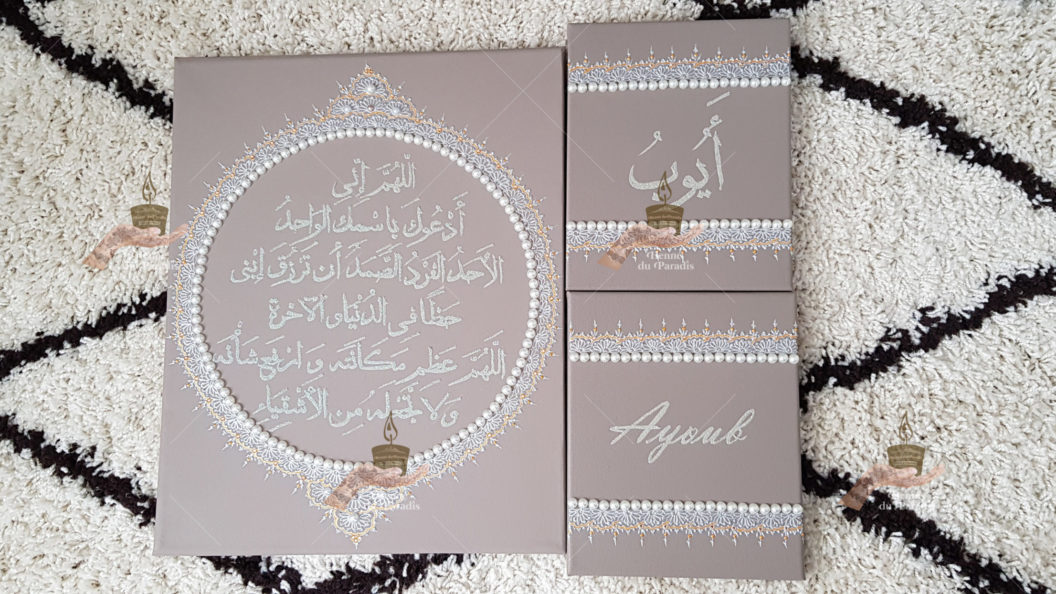 اللهم إني
أدعوك باسمك الواحد
الأحد الفرد الصمد أن ترزق إبني
حظا في الدنيا و الآخرة
اللهم عظم مكانته و ارفع شأنه
ولا تجعله من الأشقياء
أَيُوبُ
Ayoub
Henné
du Paradis
du Paradis
du Paradis